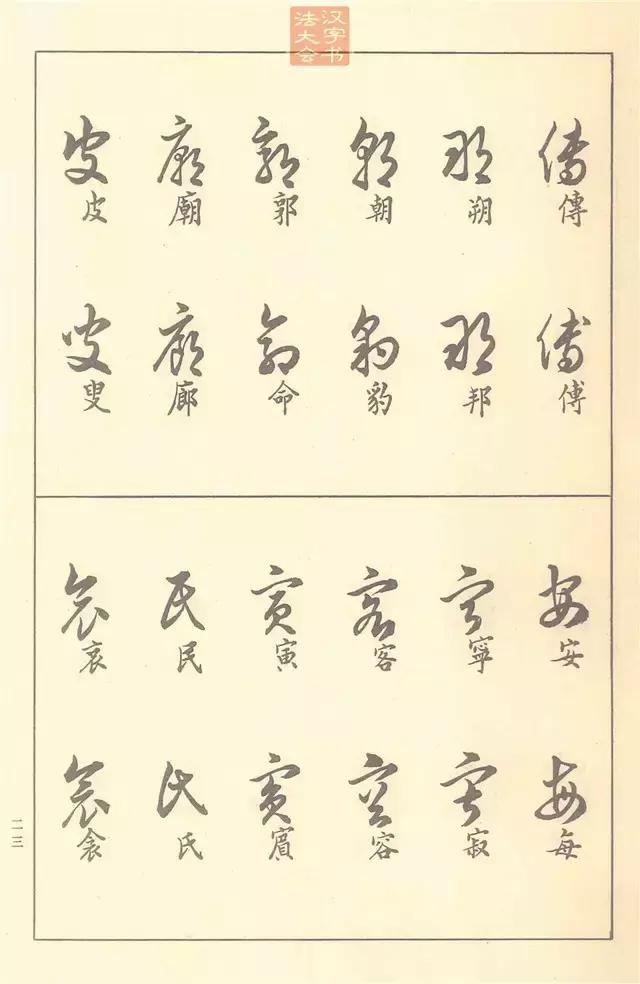 汉字书
法大会
傳傳傅傅
朔朔邦邦
朝朝豹豹
郭郭命命
廟廟廊廊
皮皮叟叟
安安每每
寧寧寂寂
客客容容
寅寅賓賓
民民氏氏
哀哀衾衾
二三